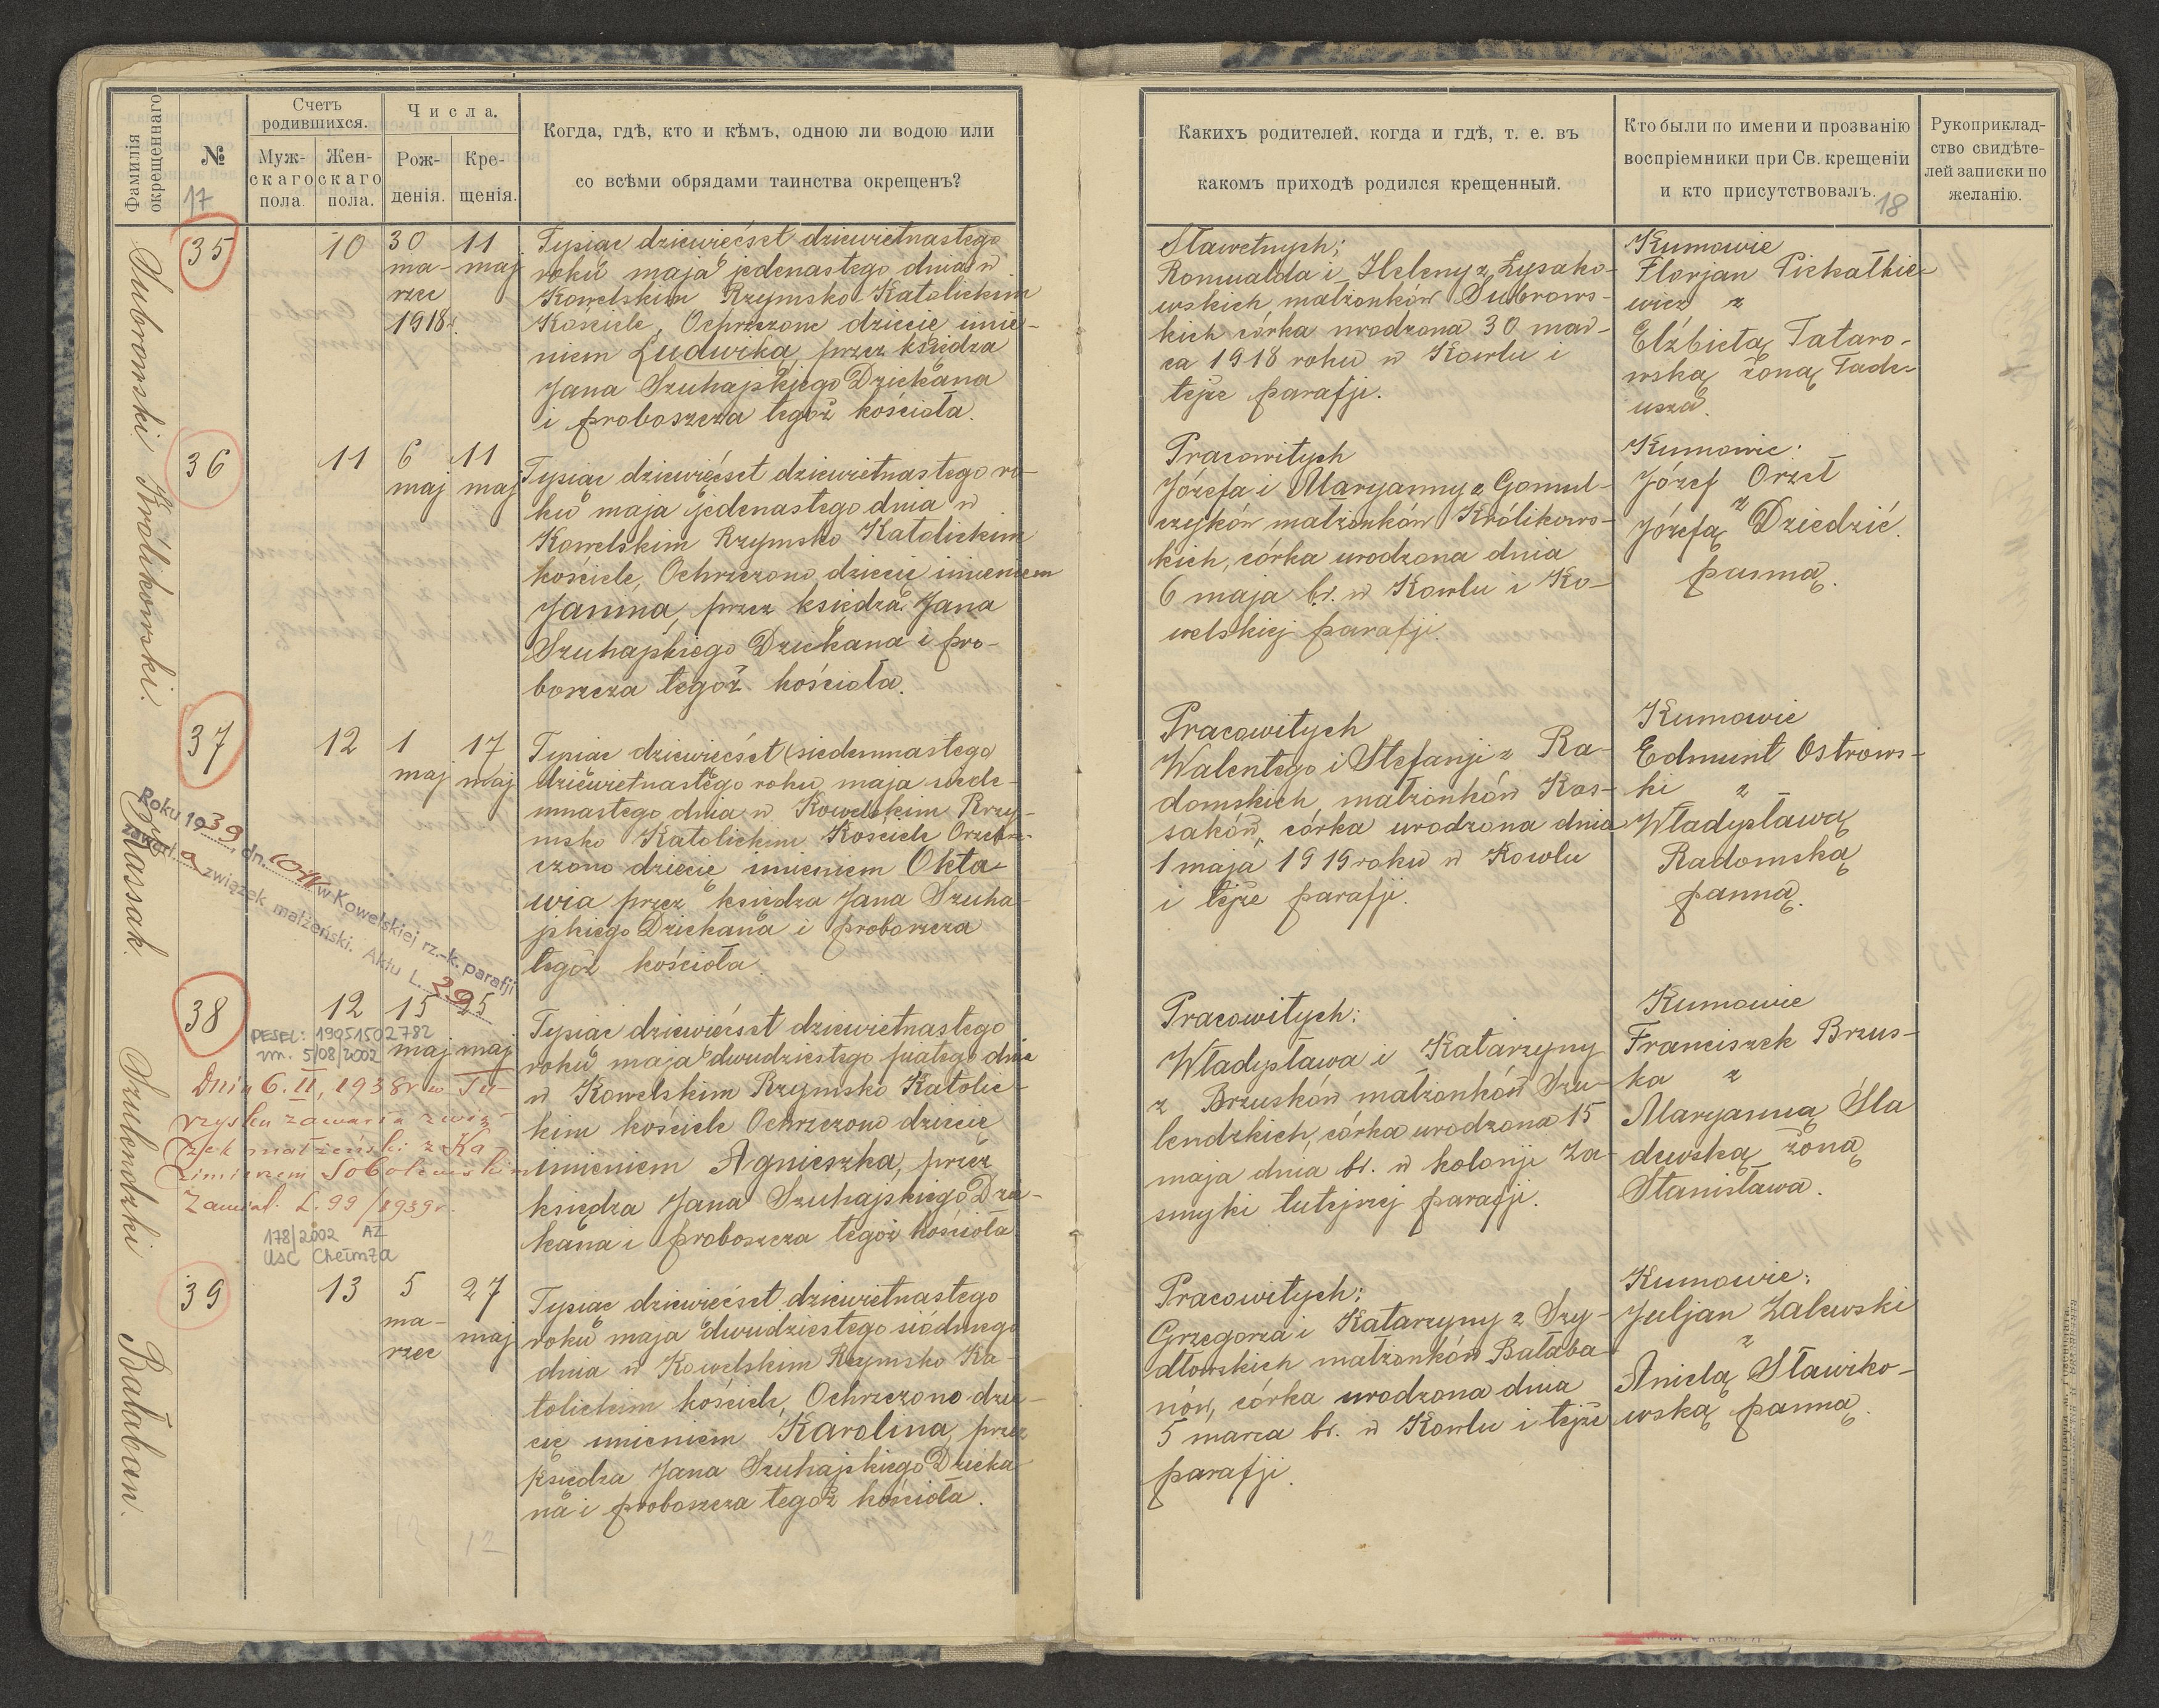 Фамилія окрещеннаго
№
17
Счетъ родившихся.
Муж-
скаго
пола.
Жен-
скаго
пола.
Числа.
Рож-
денія.
Кре-
щенія.
Когда, гдѣ, кто и кѣмъ, одною ли водою или
со всѣми обрядами таинства окрещенъ?
Subrowski
35
10
30
ma-
rzec
1918 r.
11
maj
Tysiąc dziewięćset dziewietnastego
roku maja jedenastego dnia w
Kowelskim Rzymsko Katolickim
Kościele, Ochrzczono dziecię imie-
niem Ludwika, przez księdza
Jana Szuhajskiego Dziekana
i proboszcza tegoż kościoła.
Królikowski.
36
11
6
maj
11
maj
Tysiąc dziewięćset dziewietnastego ro-
ku maja jedenastego dnia w
Kowelskim Rzymsko Katolickim
kościele, Ochrzczono dziecię imieniem
Janina, przez księdza Jana
Szuhajskiego Dziekana i pro-
boszcza tegoż kościoła.
Kassak.
37
12
1
maj
17
maj
Tysiąc dziewięćset (siedemnastego
dziewietnastego roku maja siede-
mnastego dnia w Kowelskim Rzy-
msko Katolickim Kosciele Orzchr-
czono dziecię imieniem Okta-
wia przez księdza Jana Szuha-
jskiego Dziekana i proboszcza
tegoż kościoła.
Roku 1939, dn. w Kowelskiej rz.-k. parafji
zawarła związek małżeński. Aktu L. 29
Szulendzki
38
12
15
maj
25
maj
Tysiąc dziewięćset dziewietnastego
roku maja dwudziestego piątego dnia
w Kowelskim Rzymsko Katolic-
kim kościele Ochrzczono dziecię
imieniem Agnieszka, przez
księdza Jana Szuhajskiego Dzie-
kana i proboszcza tegoż kościoła
PESEL: 19051502782
zm. 5/08/2002
Dnia 6. II, 1938 r. w Tu-
rzysku zawarła zwią-
zek małżeński z Ka
zimierzem Sobolewskim
Zawiad. L. 99/1939 r.
178/2002 AZ
USC Chełmża
Bałaban.
39
13
5
ma-
rzec
27
maj
Tysiąc dziewięćset dziewietnastego
roku maja dwudziestego siódmego
dnia w Kowelskim Rzymsko Ka-
tolickim kościele, Ochrzczono dzie-
cię imieniem Karolina, przez
księdza Jana Szuhajskiego Dzieka-
na i proboszcza tegoż kościoła.
12 12
Какихъ родителей, когда и гдѣ, т. е. въ
какомъ приходѣ родился крещенный.
Кто были по имени и прозванію
воспріемники при Св. крещеніи
и кто присутствовалъ.
18
Рукоприклад-
ство свидѣте-
лей записки по
желанію.
Sławetnych;
Romualda i Heleny z Łysako-
wskich małżonków Subrows-
kich córka urodzona 30 mar-
ca 1918 roku w Kowlu i
tejże parafji.
Kumowie
Florjan Piekałkie-
wicz z
Elżbietą Tataro-
wską żoną Tade-
usza.
Pracowitych
Józefa i Maryanny z Gomul-
czyków małżonków Królikows-
kich, córka urodzona dnia
6 maja br. w Kowlu i Ko-
welskiej parafji.
Kumowie:
Józef Orzeł
z
Józefą Dziedzić.
panną.
Pracowitych
Walentego i Stefanji z Ra-
domskich, małżonków Kas-
saków, córka urodzona dnia
1 maja 1919 roku w Kowlu
i tejże parafji.
Kumowie
Edmunt Ostrows-
ki z
Władysławą
Radomską
panną.
Pracowitych:
Władysława i Katarzyny
z Brzusków małżonków Szu-
lendzkich, córka urodzona 15
maja dnia br. w kolonji Za-
smyki tutejszej parafji.
Kumowie
Franciszek Brzus-
ka z
Maryanną Śla
dewską żoną
Stanisława.
Pracowitych:
Grzegorza i Katarzyny z Szy-
dłowskich małżonków Bałaba-
nów, córka urodzona dnia
5 marca br. w Kowlu i tejże
parafji.
Kumowie:
Juljan Zalewski
z
Anielą Sławiko-
wską panną.